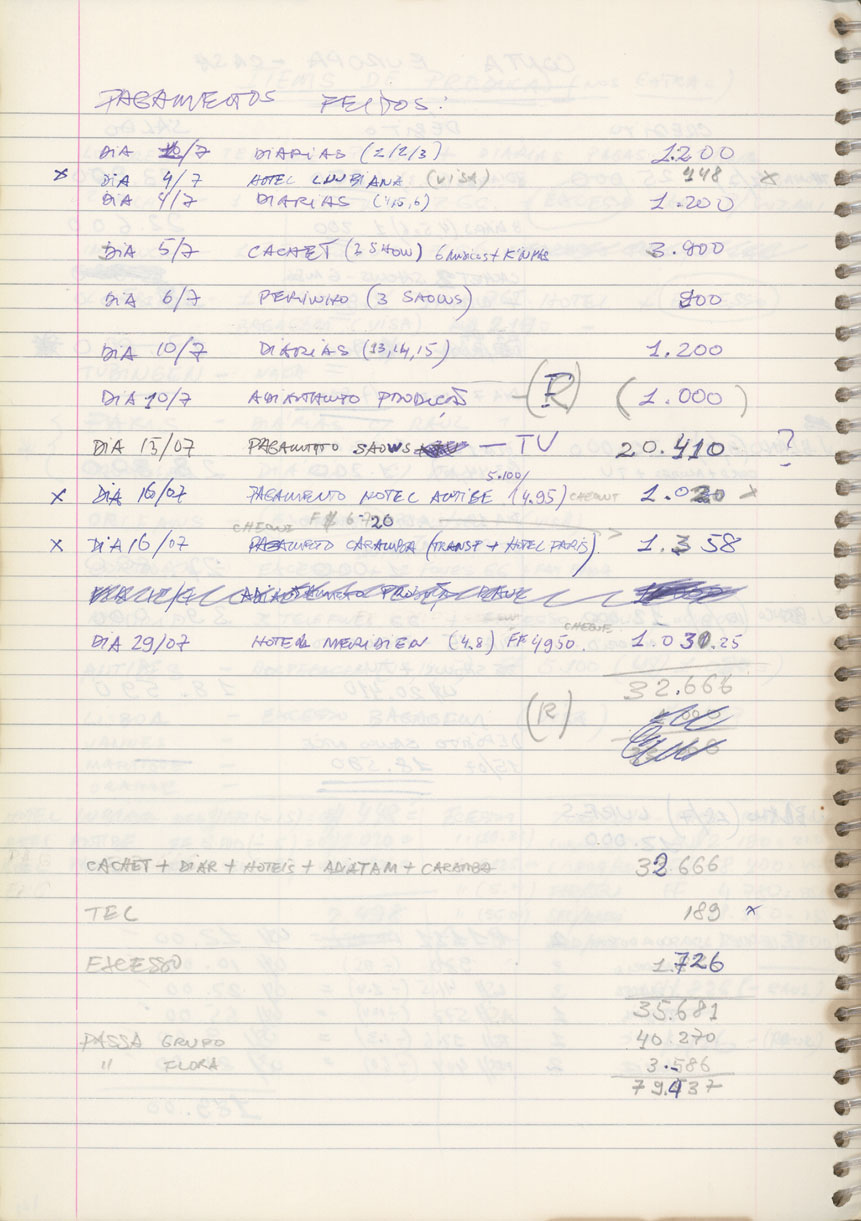 PAGAMENTOS FEITOS:
DIA /7 DIARIAS (1/2/3) 1.200
x DIA 4/7 HOTEL LIUBIANA (VISA) 448 x
DIA 4/7 DIARIAS (4,5,6) 1.200
DIA 5/7 CACHET (2 SHOW) 3.900
DIA 6/7 PERINHO (3 SHOWS) 900
DIA 10/7 DIARIAS (13,14,15) 1.200
DIA 10/7 ADIANTAMTO PRODUÇÃO (R) (1.000)
DIA 15/07 PAGAMTO SHOWS — TV 20.410 ?
5.100/
x DIA 16/07 PAGAMENTO HOTEL ANTIBE (4.95) CHEQUE 1.020 x
CHEQUE FF 6.720
x DIA 16/07 PAGAMETO CARAMBA (TRANSP + HOTEL PARIS) 1.358
DIA 29/07 HOTEL MERIDIEN (4.8) FF 4950. CHEQUE 1.031.25
32.666
(R)
CACHET + DIAR + HOTEIS + ADIATAM + CARAMBA 32.666
TEC 189 x
EXCESSO 1.726
35.681
PASSA GRUPO 40.270
" FLORA 3.586
79.437